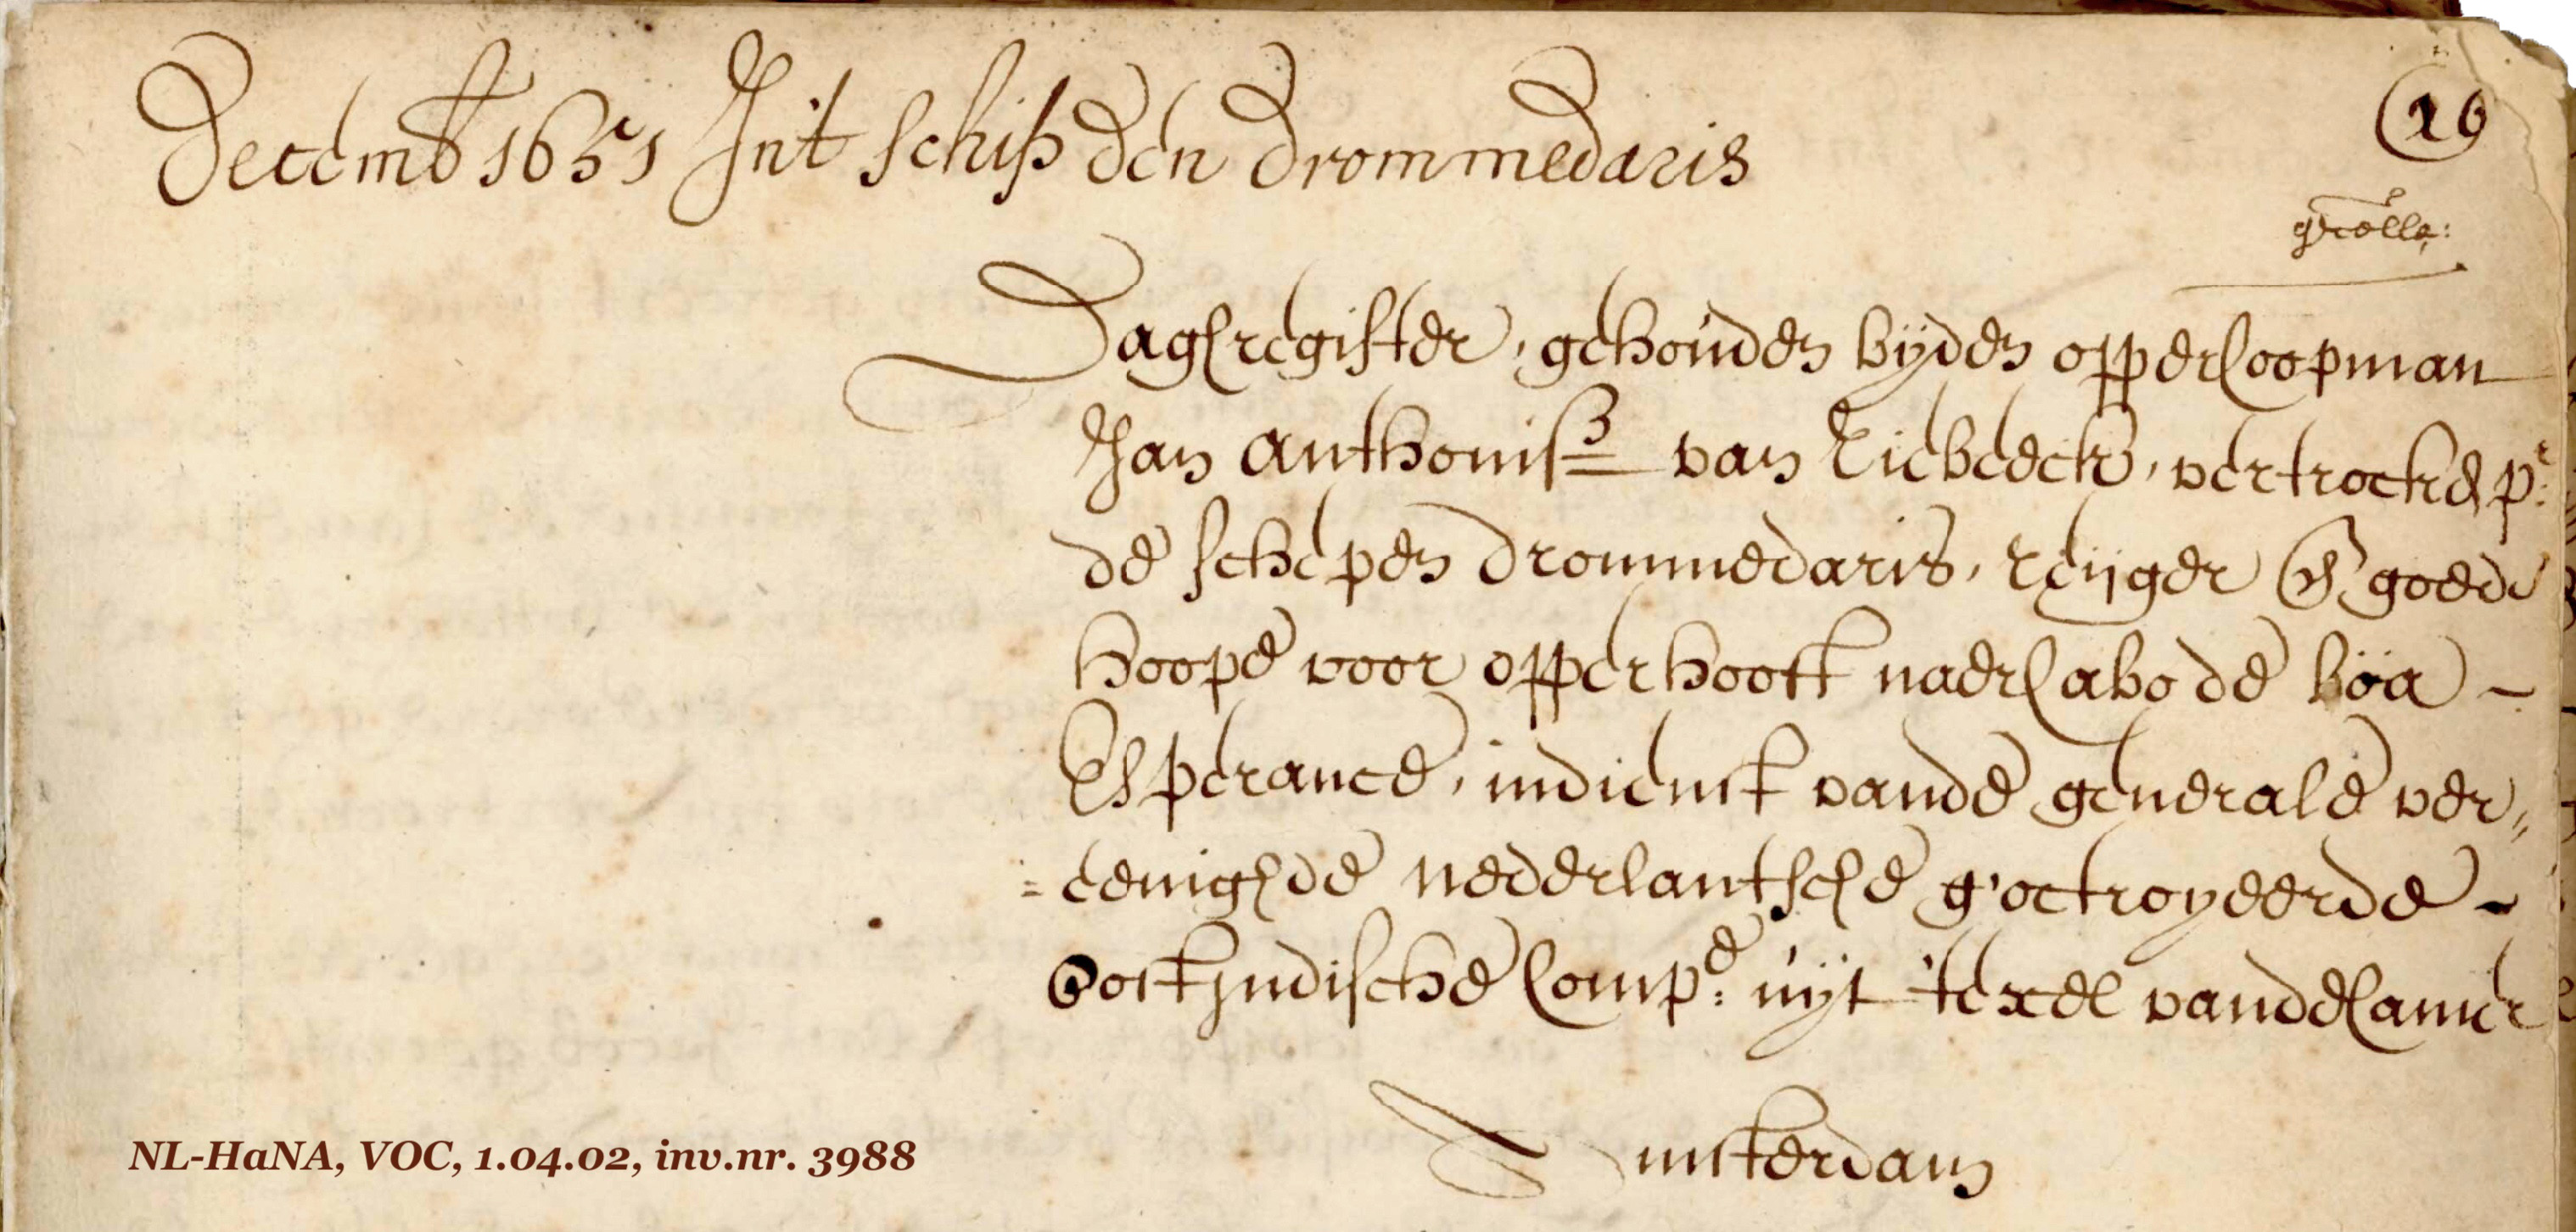 Decemb 1651 Int schip den Drommedaris
16
gecolle:
Daghregister, gehouden bijden opperCoopman
Jan Anthonisz van Riebeeck, vertrocken pr:
de schepen Drommedaris, Reijger en goede
hoope voor opperhooft naer Cabo de boa -
Esperance, indienst vande generale ver„
= eenighde nederlantsche g'octroyeerde -
Oostjndische Compe: uijt 'texel vande Camer
Amsterdam
NL-HaNA, VOC, 1.04.02, inv.nr. 3988